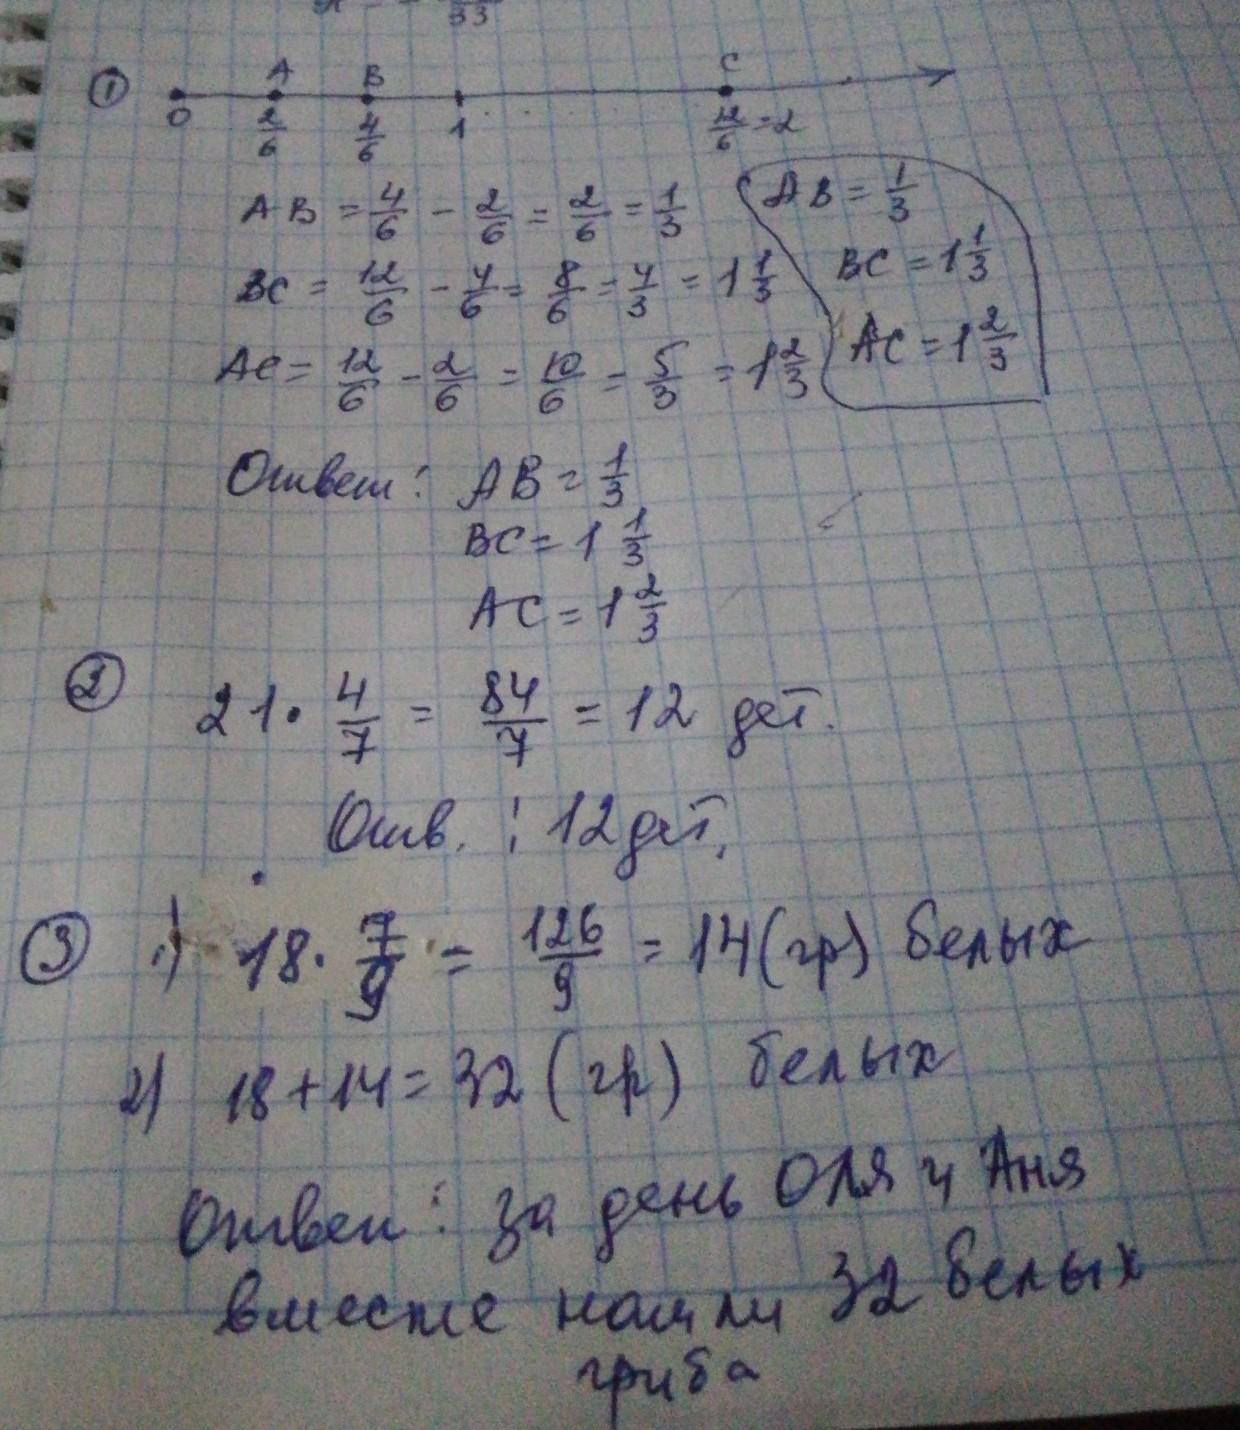 33
① A B C
0 2/6 4/6 1 12/6 = 2
AB = 4/6 - 2/6 = 2/6 = 1/3
BC = 12/6 - 4/6 = 8/6 = 4/3 = 1 1/3
AC = 12/6 - 2/6 = 10/6 = 5/3 = 1 2/3
AB = 1/3
BC = 1 1/3
AC = 1 2/3
Ответ: AB = 1/3
BC = 1 1/3
AC = 1 2/3
② 21 · 4/7 = 84/7 = 12 дет.
Отв.: 12 дет.
③ 1) 18 · 7/9 = 126/9 = 14 (гр) белых
2) 18 + 14 = 32 (гр) белых
Ответ: за день Оля и Аня
вместе нашли 32 белых
гриба